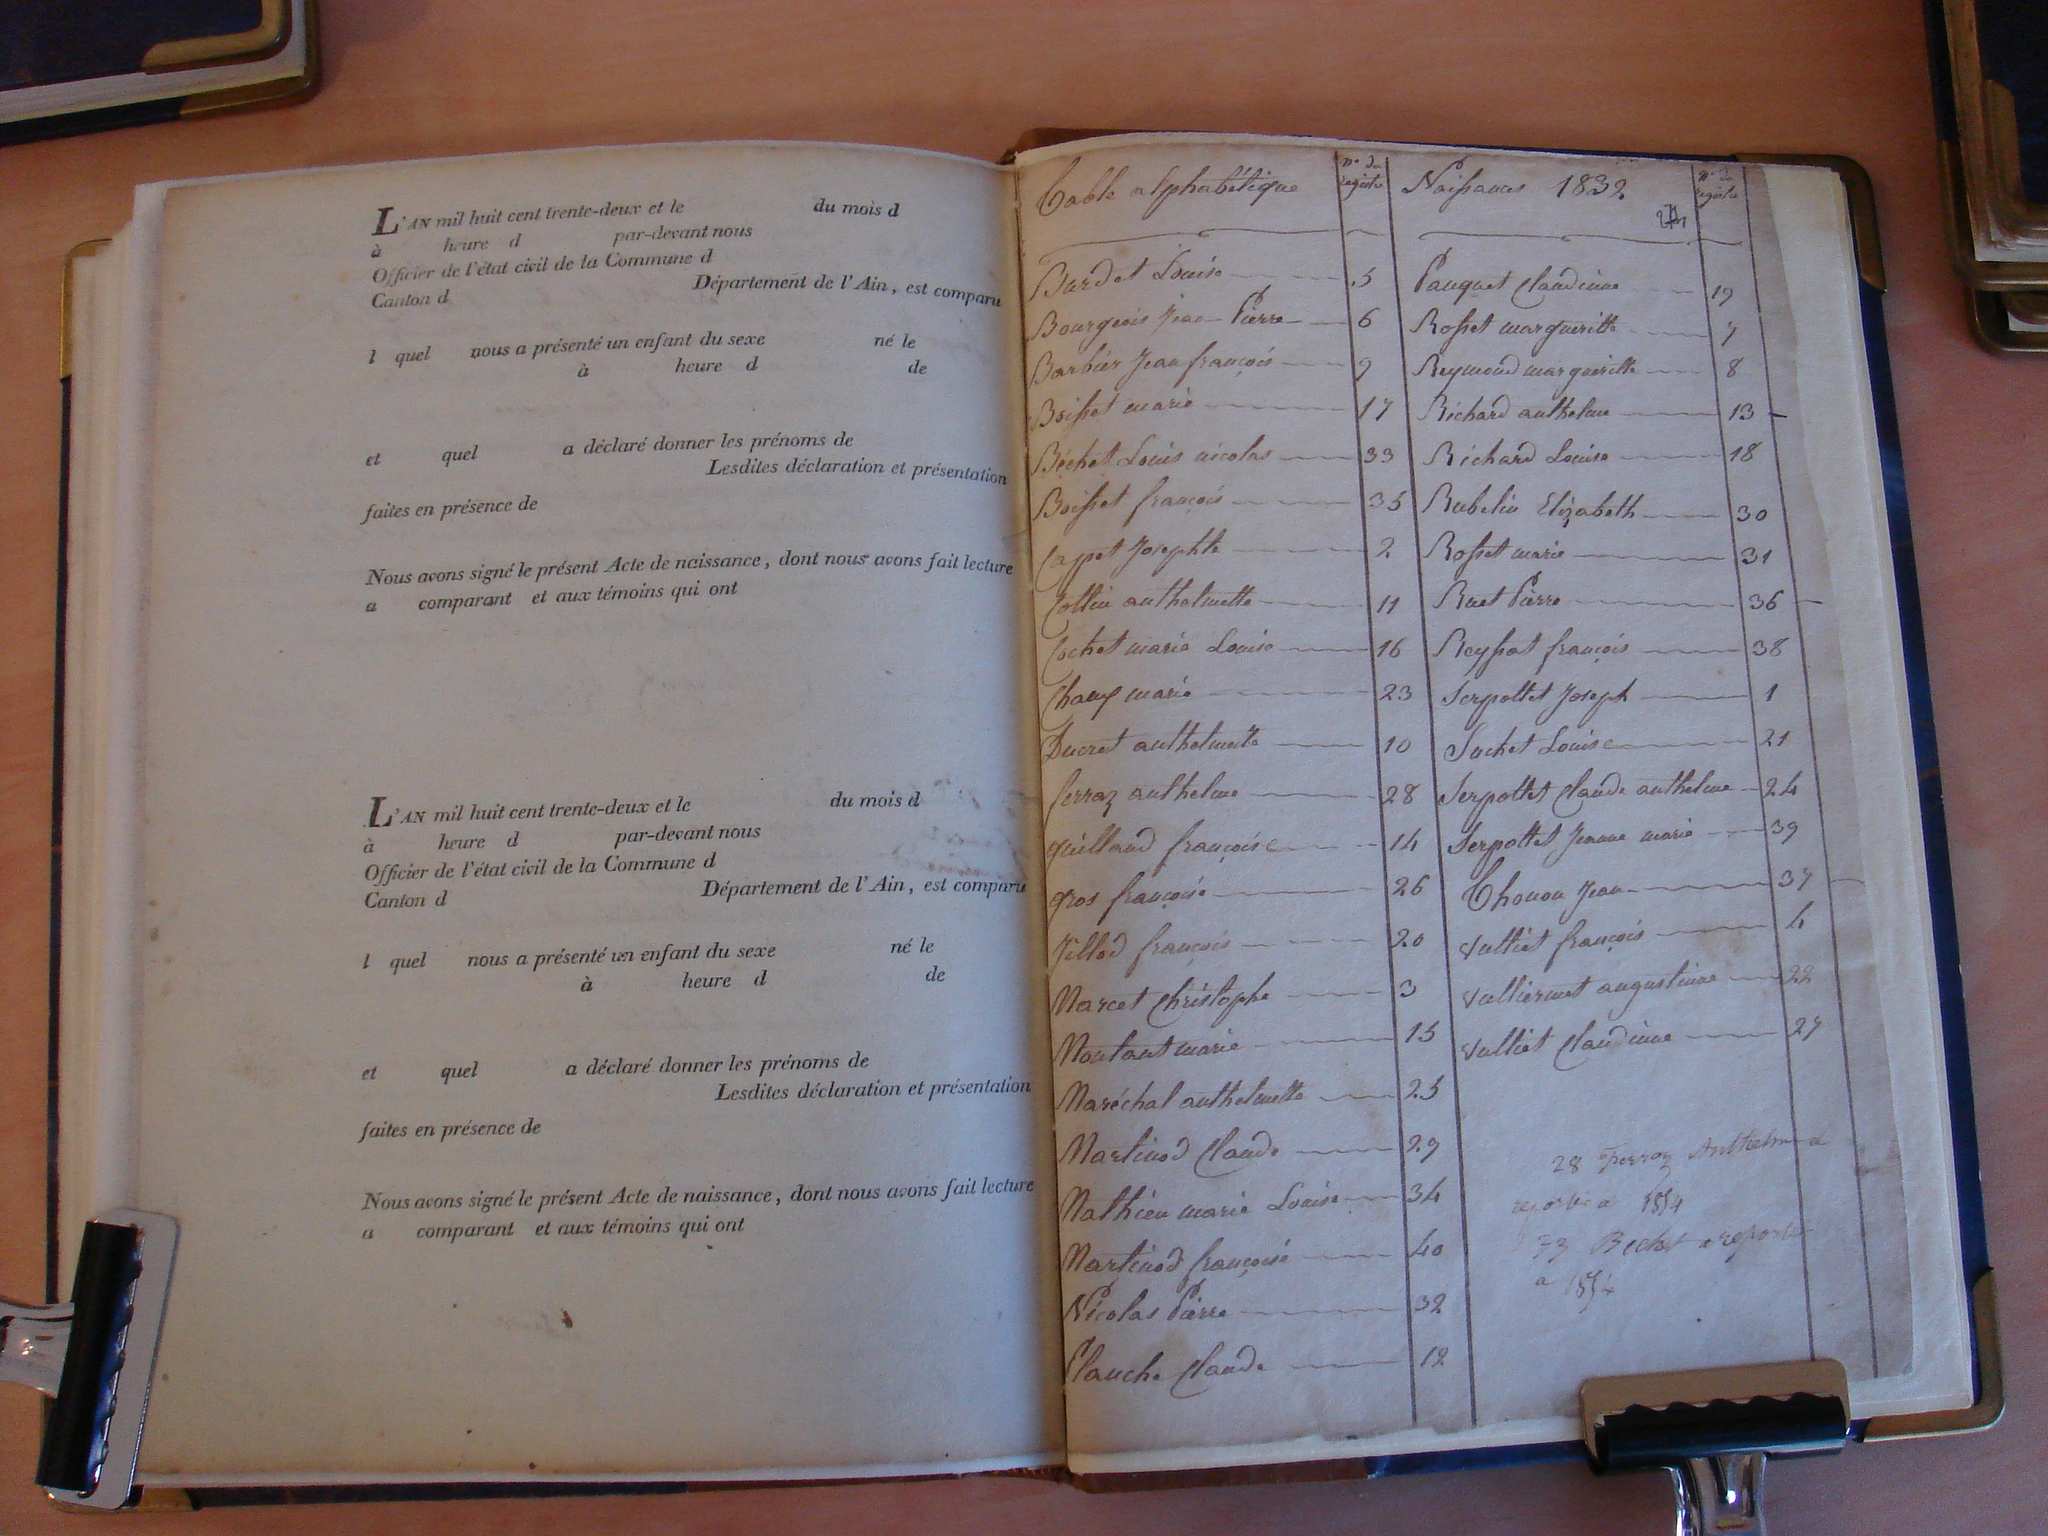 L'AN mil huit cent trente-deux et le du mois d
à heure d par-devant nous
Officier de l'état civil de la Commune d
Canton d Département de l'Ain, est comparu
l quel nous a présenté un enfant du sexe né le
à heure d de
et quel a déclaré donner les prénoms de
Lesdites déclaration et présentation
faites en présence de
Nous avons signé le présent Acte de naissance, dont nous avons fait lecture
a comparant et aux témoins qui ont
L'AN mil huit cent trente-deux et le du mois d
à heure d par-devant nous
Officier de l'état civil de la Commune d
Canton d Département de l'Ain, est comparu
l quel nous a présenté un enfant du sexe né le
à heure d de
et quel a déclaré donner les prénoms de
Lesdites déclaration et présentation
faites en présence de
Nous avons signé le présent Acte de naissance, dont nous avons fait lecture
a comparant et aux témoins qui ont
Table alphabétique
n° du registre
Burdet Louise 5
Bourgeois Jean Pierre 6
Barbier Jean françois 9
Boisset marie 17
Béchet Louis nicolas 33
Boisset françois 35
Cappet Josephte 2
Collin anthelmette 11
Cochet marie Louise 16
Champ marie 23
Ducret anthelmette 10
ferraz anthelme 28
guilland françoise 14
gros françoise 26
Jillod françois 20
Marcet Christophe 3
Montant marie 15
Maréchal anthelmette 25
Martinod Claude 29
Mathieu marie Louise 34
Martinod françoise 40
Nicolas Pierre 32
Planche Claude 12
Naissances 1832
n° du registre
Pauquet Claudinne 19
Rosset margueritte 7
Reymond margueritte 8
Richard anthelme 13
Richard Louise 18
Rubelin Elizabeth 30
Rosset marie 31
Ruet Pierre 36
Reyssat françois 38
Serpollet Joseph 1
Suchet Louise 21
Serpollet Claude anthelme 24
Serpollet Jeanne marie 39
Thonon Jean 37
Vulliet françois 4
Vulliermet augustinne 22
Vulliet Claudinne 27
28 Ferraz Anthelme a
reporter a 1854
33 Bechet a reporter
a 1854